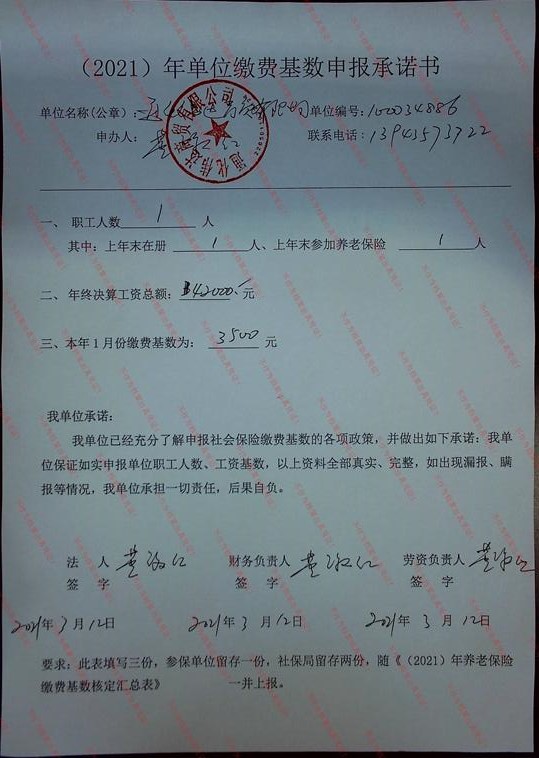 （2021）年单位缴费基数申报承诺书
单位名称(公章): 单位编号:100034886
申办人: 黄淑红 联系电话: 13943573722
一、 职工人数 1 人
其中: 上年末在册 1 人、上年末参加养老保险 1 人
二、年终决算工资总额: 42000 元
三、本年1月份缴费基数为: 3500 元
我单位承诺:
我单位已经充分了解申报社会保险缴费基数的各项政策，并做出如下承诺: 我单
位保证如实申报单位职工人数、工资基数，以上资料全部真实、完整，如出现漏报、瞒
报等情况，我单位承担一切责任，后果自负。
法 人 黄淑红 财务负责人 黄淑红 劳资负责人 黄淑红
签 字 签 字 签 字
2021年3月12日 2021年3月12日 2021年3月12日
要求: 此表填写三份，参保单位留存一份，社保局留存两份，随《（2021）年养老保险
缴费基数核定汇总表》 一并上报。